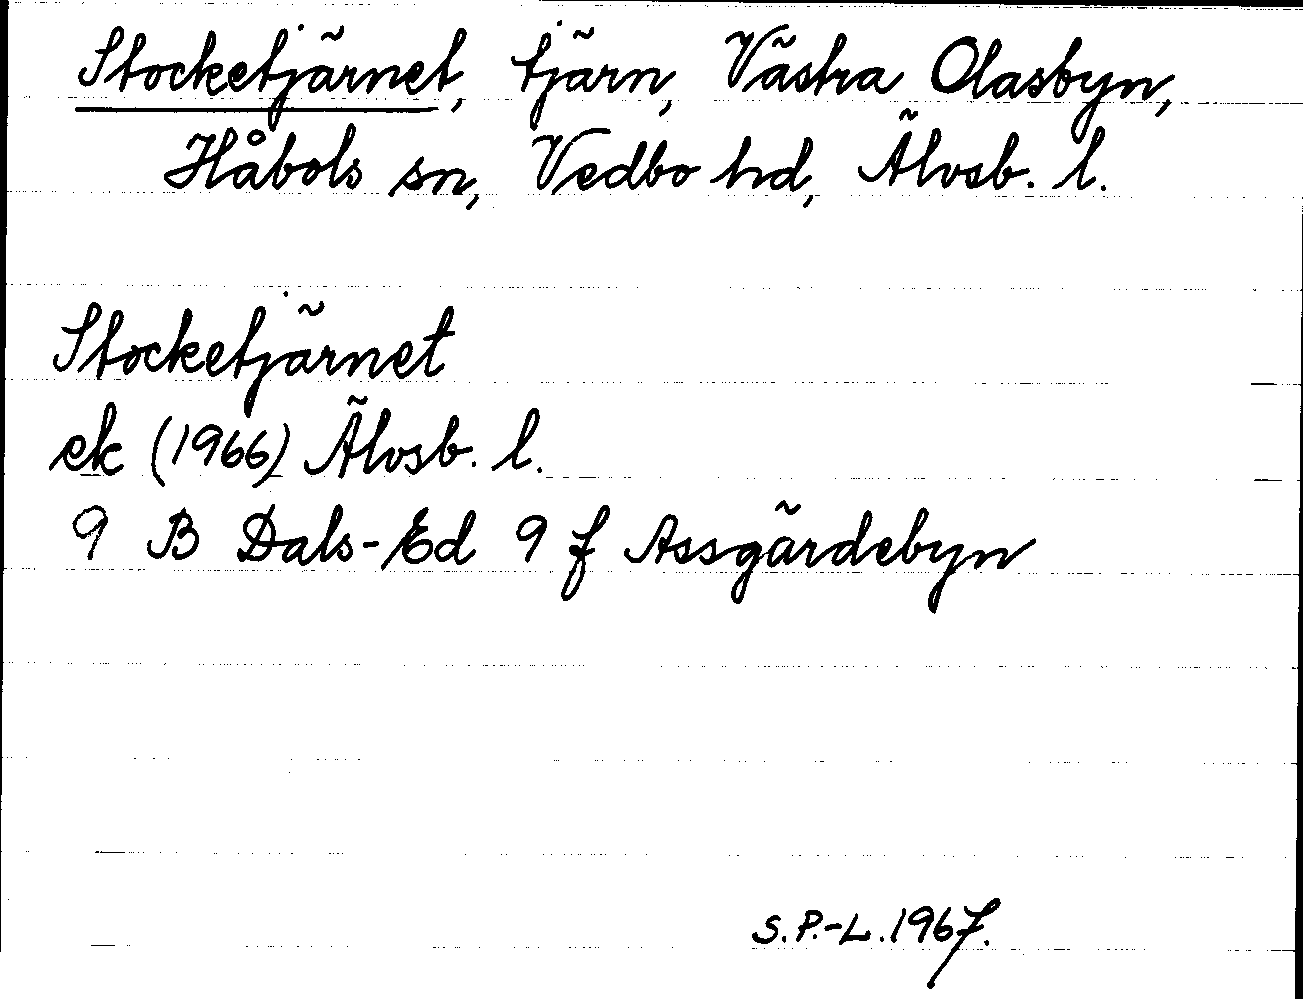 Stocketjärnet, tjärn, Västra Olasbyn,
Håbols sn, Vedbo hd, Älvsb. l.
Stocketjärnet
ek (1966) Älvsb. l.
9 B Dals-Ed 9 f Assgärdebyn
S.P.-L. 1967.